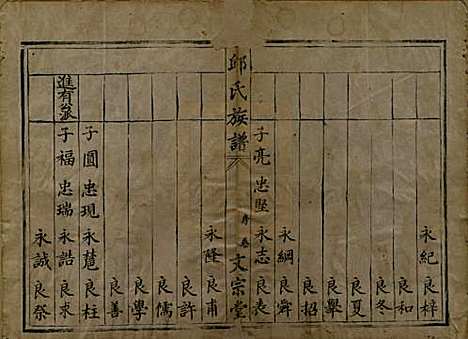 永紀 良梓
良和
良冬
良夏
良舉
良招
永綱 良舜
子亮 忠堅 永志 良表
邱氏族譜 序卷 文宗堂
永隆 良甫
良許
良儒
良學
良善
子圓 忠現 永蔍 良柱
子福 忠瑞 永誥 良求
進有公派
永誠 良祭